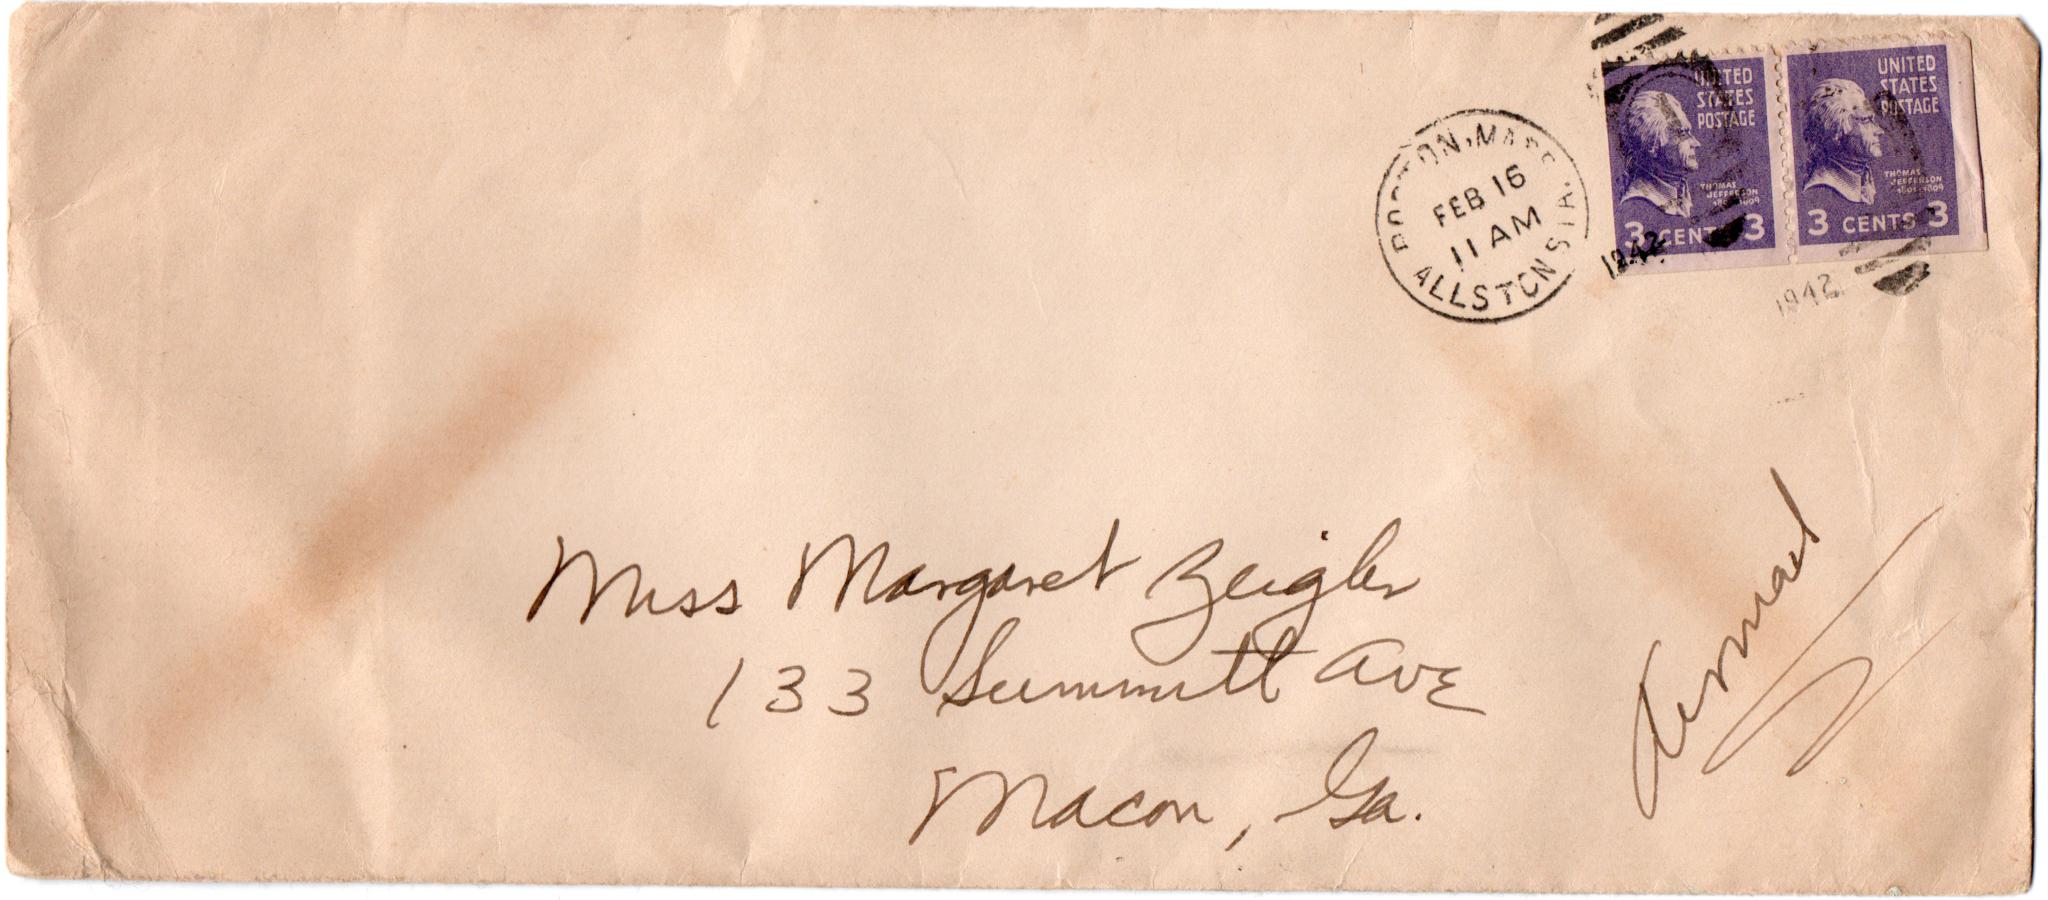 BOSTON, MASS.
FEB 16
11 AM
ALLSTON STA.
1942
1942
UNITED
STATES
POSTAGE
THOMAS
JEFFERSON
1801-1809
3 CENTS 3
UNITED
STATES
POSTAGE
THOMAS
JEFFERSON
1801-1809
3 CENTS 3
Miss Margaret Zeigler
133 Summitt Ave
Macon, Ga.
Airmail